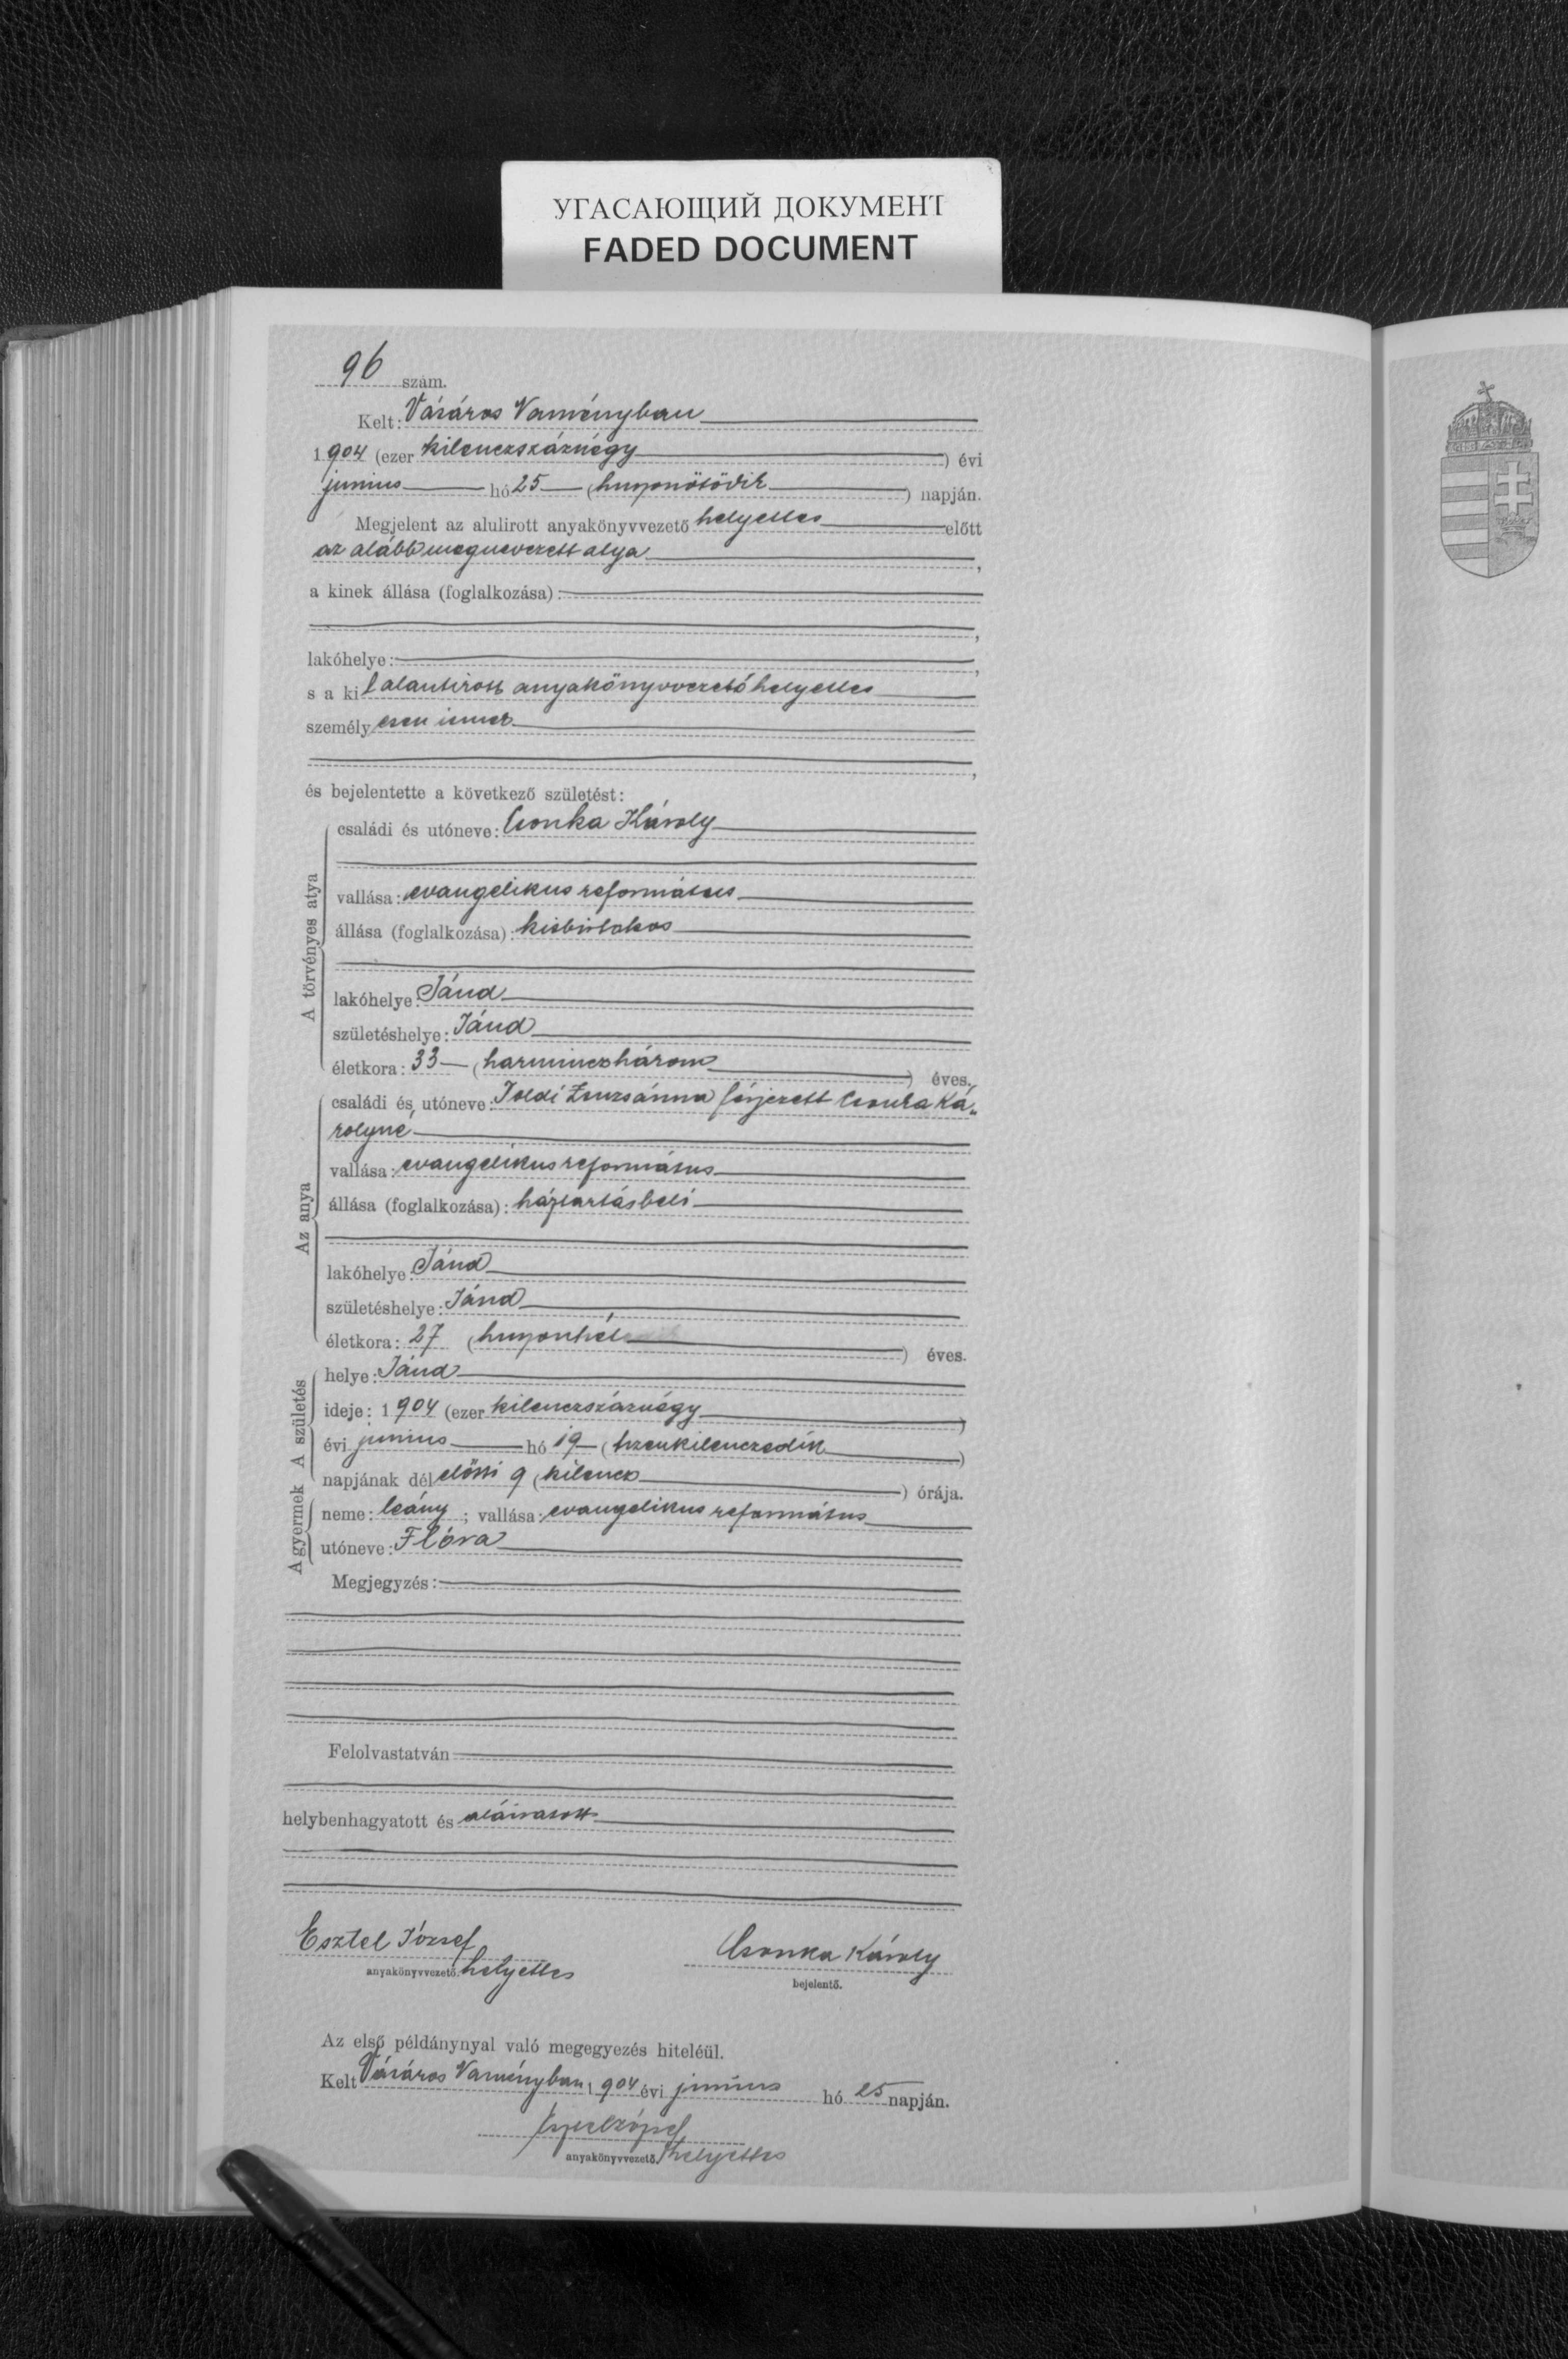 УГАСАЮЩИЙ ДОКУМЕНТ
FADED DOCUMENT
96 szám.
Kelt: Vásáros Naményban
1904 (ezer kilenczszáznégy) évi
junius hó 25 (huszonötödik) napján.
Megjelent az alulirott anyakönyvvezető helyettes előtt
az alább megnevezett atya,
a kinek állása (foglalkozása):
,
lakóhelye: ,
s a kit alantirott anyakönyvvezető helyettes
személyesen ismer
,
és bejelentette a következő születést:
A törvényes atya
családi és utóneve: Csonka Károly
vallása: evangelikus református
állása (foglalkozása): kisbirtokos
lakóhelye: Jánd
születéshelye: Jánd
életkora: 33 (harminczhárom) éves.
Az anya
családi és utóneve: Toldi Zsuzsánna férjezett Csonka Ká-
rolyné
vallása: evangelikus református
állása (foglalkozása): háztartásbeli
lakóhelye: Jánd
születéshelye: Jánd
életkora: 27 (huszonhét) éves.
A születés
helye: Jánd
ideje: 1904 (ezer kilenczszáznégy)
évi junius hó 19 (tizenkilenczedik)
napjának délelőtti 9 (kilencz) órája.
A gyermek
neme: leány; vallása: evangelikus református
utóneve: Flóra
Megjegyzés:
Felolvastatván
helybenhagyatott és aláiratott
Esztel József
anyakönyvvezető. helyettes
Csonka Károly
bejelentő.
Az első példánynyal való megegyezés hiteléül.
Kelt Vásáros Naményban 1904 évi junius hó 25 napján.
anyakönyvvezető. helyettes